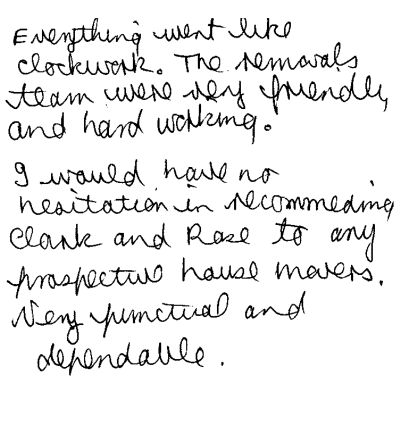 Everything went like
clockwork. The removals
team were very friendly
and hard working.
I would have no
hesitation in recommeding
Clark and Rose to any
prospective house movers.
Very punctual and
dependable.